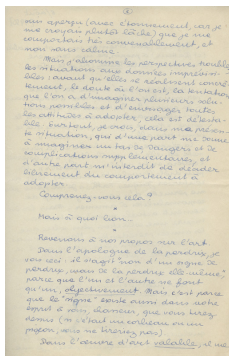 me croyais plutôt lâche) que je me
comportais très convenablement, et
mon sang calme.
Mais j'abomine les perspectives troubles,
les situations aux données imprécises
: avant qu'elles se réalisent
le doute où l'on est, la tentation
que l'on a d'imaginer plusieurs solutions
possibles et d'envisager toutes
les attitudes à adopter, cela est
surtout, je crois, dans ma présente
situation, qui d'une part me donne
à imaginer un tas de dangers et de
complications supplémentaires, et
d'autre part m'interdit de décider
du comportement à
adopter.
Comprenez-vous cela?
*
Mais à quoi bon...
*
Revenons à nos propos sur l'art
Dans l'apologue de la perdrix, je
il s'agit non d'un signe de
perdrix, mais de la perdrix elle-même
parce que l'un et l'autre ne font
qu'un, objectivement. Mais c'est parce
que le "signe" existe aussi dans votre
esprit à vous, chasseur, que vous tirez
dessus (
pigeon, vous ne tireriez pas)
Dans l'œuvre d'art valable, il me